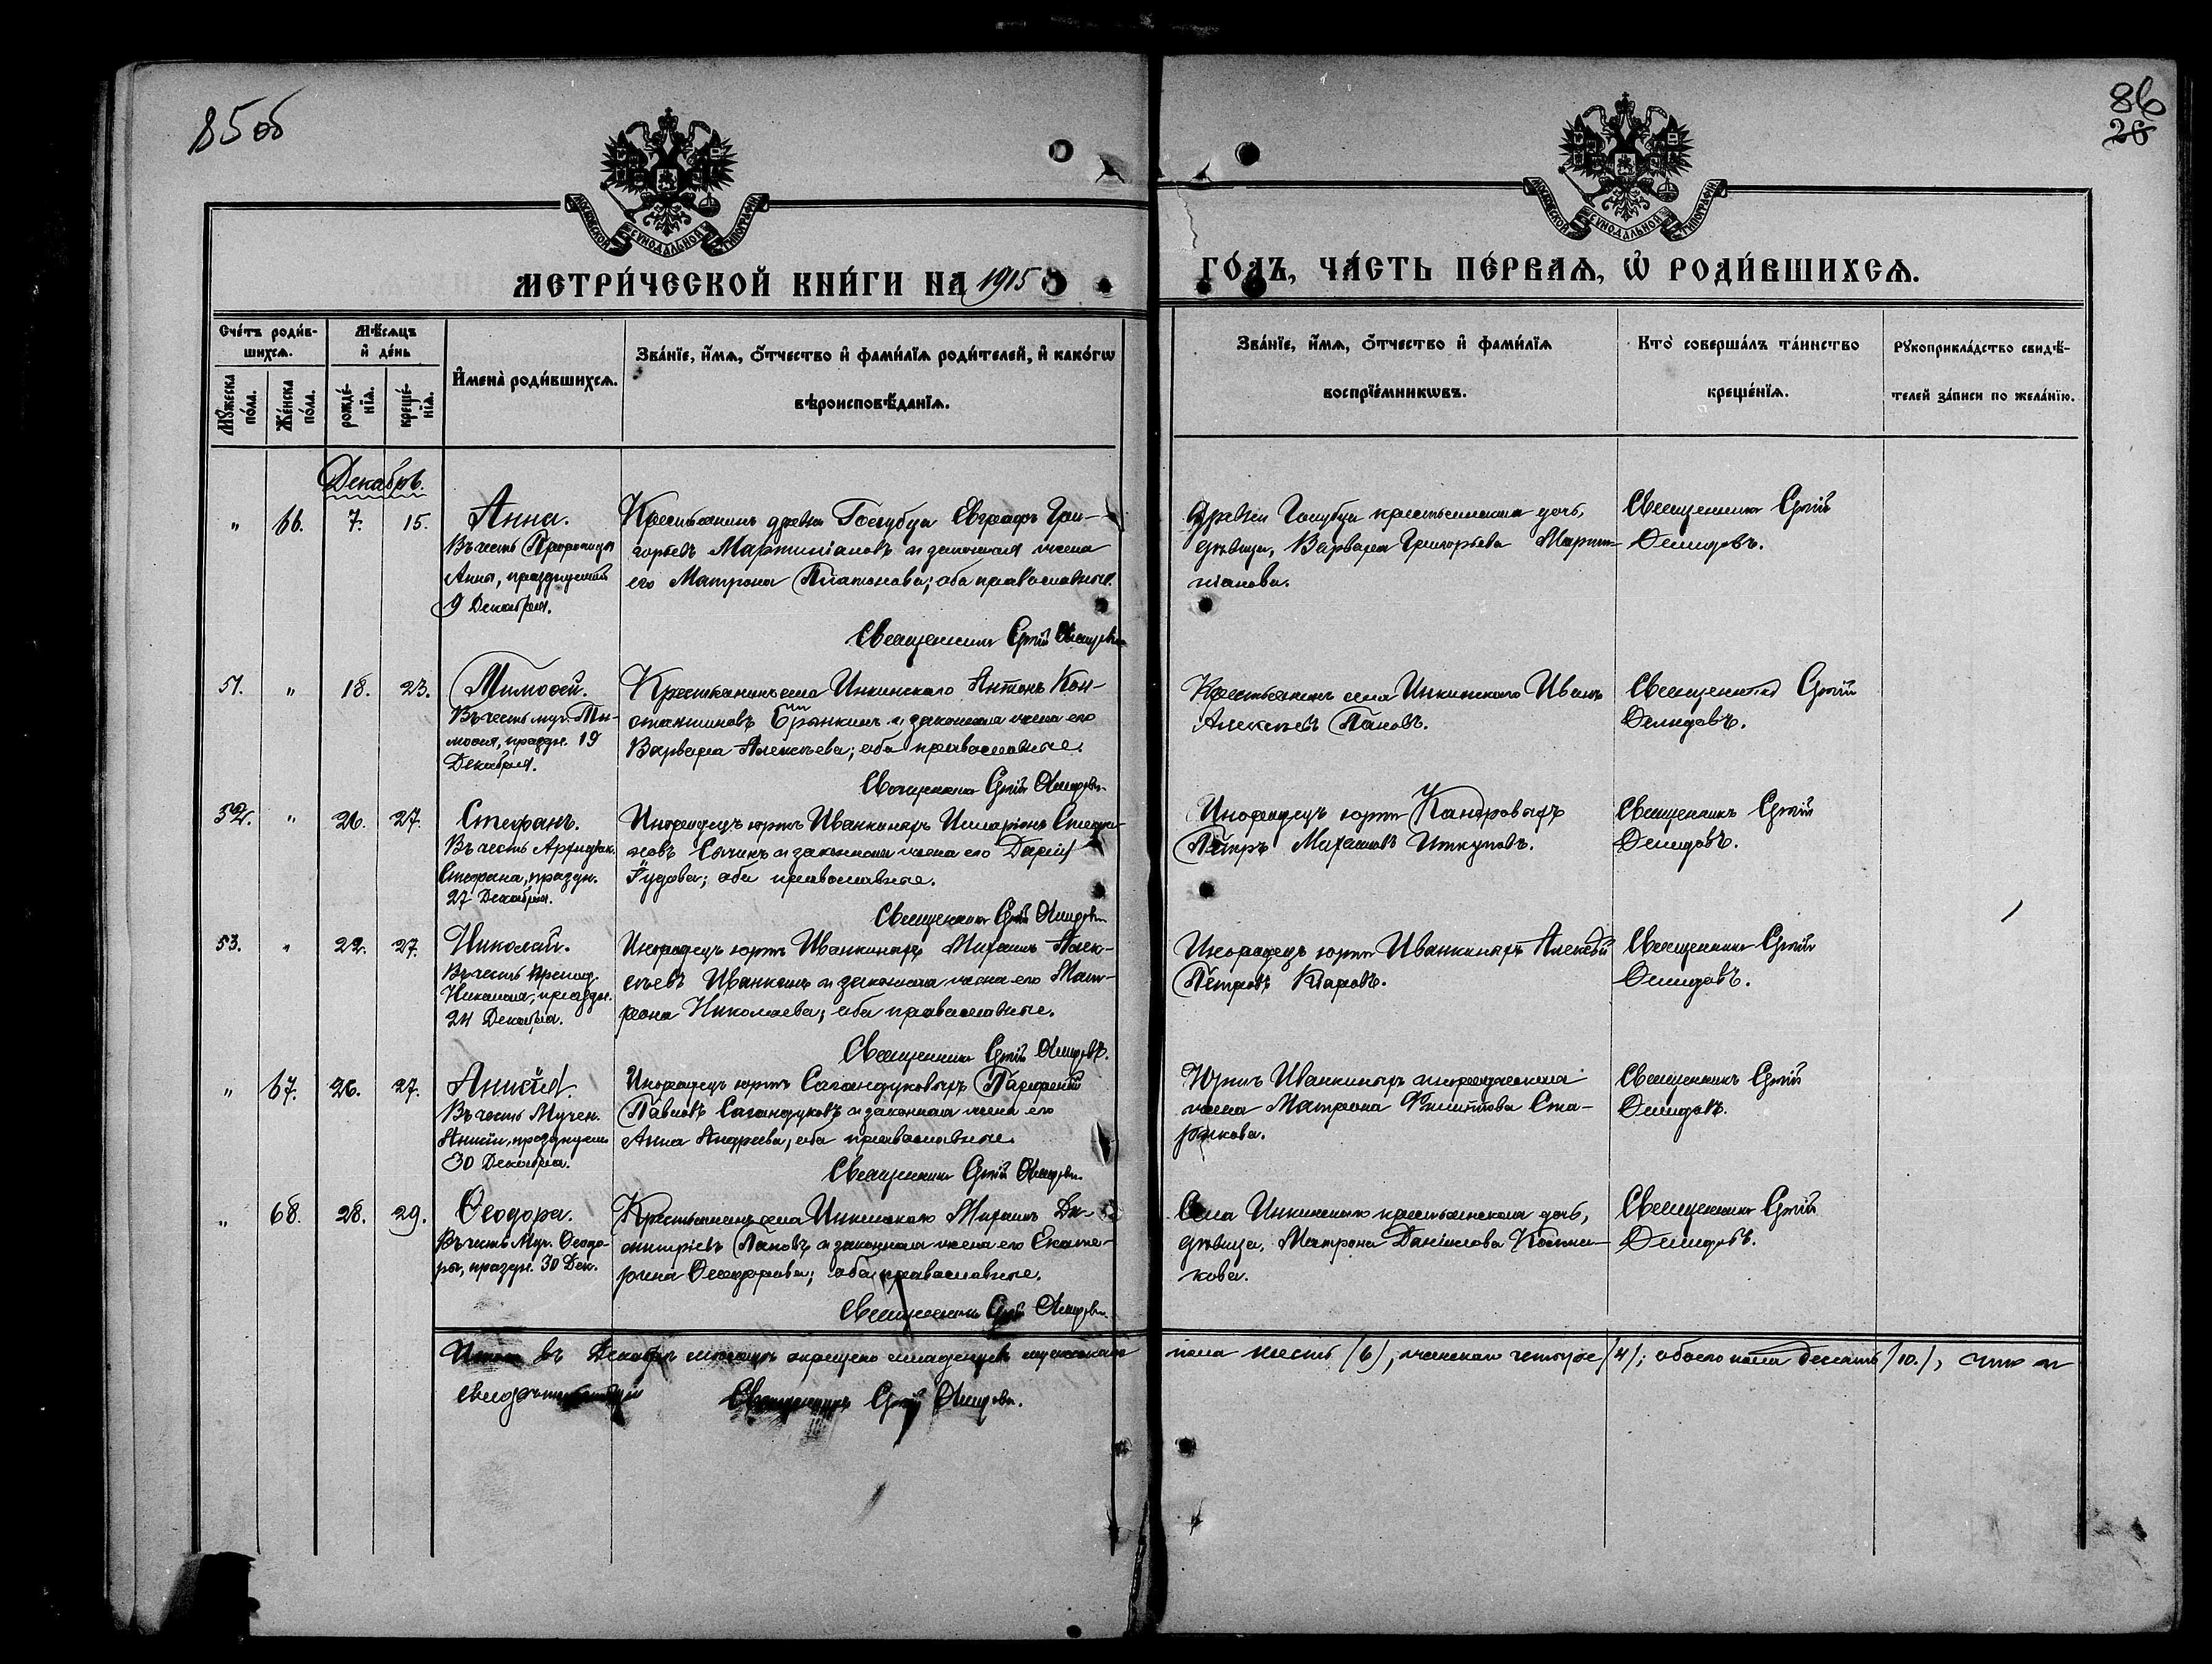 85об
86
28
МОСКОВСКОЙ СѴНОДАЛЬНОЙ ТИПОГРАФІИ
МОСКОВСКОЙ СѴНОДАЛЬНОЙ ТИПОГРАФІИ
МЕТРИ́ЧЕСКОЙ КНИ́ГИ НА 1915
ГО́ДЪ, ЧА́СТЬ ПЕ́РВАѦ, Ѡ҆ РОДИ́ВШИХСѦ.
Сче́тъ роди́в-
шихсѧ.
Мѣ́сѧцъ
и҆ де́нь
Мꙋ́жеска
по́ла.
Же́нска
по́ла.
рожде́-
нїѧ.
креще́-
нїѧ.
И҆мена̀ роди́вшихсѧ.
Зва́нїе, и҆́мѧ, ѻ҆́тчество и҆ фами́лїѧ роди́телей, и҆ како́гѡ
вѣроисповѣ́данїѧ.
Зва́нїе, и҆́мѧ, ѻ҆́тчество и҆ фами́лїѧ
воспрїе́мникѡвъ.
Кто̀ соверша́лъ та́инство
креще́нїѧ.
Рꙋкоприкла́дство свидѣ́-
телей за́писи по жела́нїю.
Декабрь.
" 66. 7. 15.
Анна.
Въ честь Пророчицы
Анны, празднуемой
9 Декабря.
Крестьянинъ дрвни Голубца Евграфъ Гри-
горьевъ Мартиніановъ и законная жена
его Матрона Платонова; оба православные.
Священникъ Сергій Демидовъ
Дрвни Голубца крестьянская дочь,
дѣвица, Варвара Григорьева Марти-
ніанова.
Священникъ Сергій
Демидовъ.
51. " 18. 23.
Тимоѳей.
Въ честь муч. Ти-
моѳея, праздн. 19
Декабря.
Крестьянинъ села Инкинскаго Антонъ Кон-
стантиновъ и законная жена его
Варвара Алексѣева; оба православные.
Священникъ Сергій Демидовъ
Крестьянинъ села Инкинскаго Иванъ
Алексѣевъ Пановъ.
Священникъ Сергій
Демидовъ.
52. " 26. 27.
Стефанъ.
Въ честь Архидіак.
Стефана, праздн.
27 Декабря.
Инородецъ юртъ Иванкиныхъ Иларіонъ Стефа-
новъ и законная жена его Дарія
Іудова; оба православные.
Священникъ Сергій Демидовъ
Инородецъ юртъ
Петръ Михаиловъ
Священникъ Сергій
Демидовъ.
53. " 22. 27.
Николай.
Въ честь препод.
Николая, праздн.
24 Декабря.
Инородецъ юртъ Иванкиныхъ Михаилъ Алек-
сѣевъ Иванкинъ и законная жена его Мат-
рона Николаева; оба православные.
Священникъ Сергій Демидовъ.
Инородецъ юртъ Иванкиныхъ Алексѣй
Петровъ
Священникъ Сергій
Демидовъ.
" 67. 26. 27.
Анисія.
Въ честь Мучен.
Анисіи, празднуем.
30 Декабря.
Инородецъ юртъ Сагандуковыхъ Парфеній
Павловъ Сагандуковъ и законная жена его
Анна Андреева; оба православные.
Священникъ Сергій Демидовъ
Юртъ Иванкиныхъ инородческая
жена Матрона Филиппова Ста-
рикова.
Священникъ Сергій
Демидовъ.
" 68. 28. 29.
Ѳеодора.
Въ честь Муч. Ѳеодо-
ры, праздн. 30 Дек.
Крестьянинъ села Инкинскаго Михаилъ Ди-
митріевъ Пановъ и законная жена его Екате-
рина Ѳеодорова; оба православные.
Священникъ Сергій Демидовъ
Села Инкинскаго крестьянская дочь,
дѣвица, Матрона Даніилова
кова.
Священникъ Сергій
Демидовъ.
Итого въ Декабрѣ мѣсяцѣ окрещено младенцевъ мужескаго пола шесть /6/, женскаго четыре /4/; обоего пола десять /10./, что и
свидѣтельствую Священникъ Сергій Демидовъ.